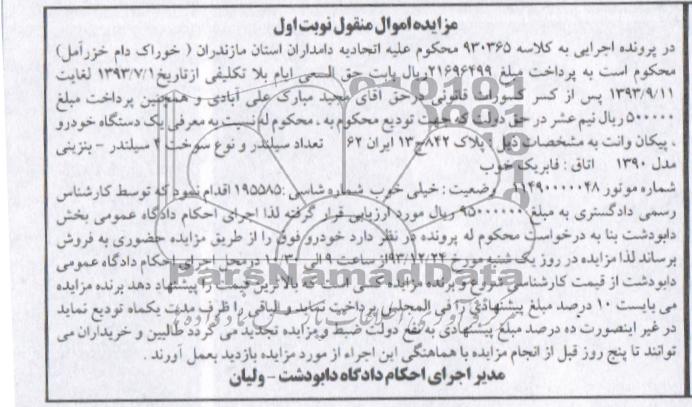 مزایده اموال منقول نوبت اول
در پرونده اجرایی به کلاسه ۹۳۰۳۶۵ محکوم علیه اتحادیه دامداران استان مازندران ( خوراک دام خزرآمل)
محکوم است به پرداخت مبلغ ۲۱۶۹۶۴۹۹ریال بابت حق السعی ایام بلا تکلیفی ازتاریخ۱۳۹۳/۷/۱ لغایت
۱۳۹۳/۹/۱۱ پس از کسر کسورات قانونی درحق آقای مجید مبارک علی آبادی و همچنین پرداخت مبلغ
۵۰۰۰۰۰ ریال نیم عشر در حق دولت که جهت تودیع محکوم به ، محکوم له نسبت به معرفی یک دستگاه خودرو
، پیکان وانت به مشخصات ذیل : پلاک ۸۴۲ج۱۳ ایران ۶۲ تعداد سیلندر و نوع سوخت ۴ سیلندر - بنزینی
مدل ۱۳۹۰ اتاق : فابریک خوب
شماره موتور ۱۱۴۹۰۰۰۰۰۴۸ وضعیت : خیلی خوب شماره شاسی :۱۹۵۵۸۵ اقدام نمود که توسط کارشناس
رسمی دادگستری به مبلغ ۹۵۰۰۰۰۰۰ ریال مورد ارزیابی قرار گرفته لذا اجرای احکام دادگاه عمومی بخش
دابودشت بنا به درخواست محکوم له پرونده در نظر دارد خودرو فوق را از طریق مزایده حضوری به فروش
برساند لذا مزایده در روز یک شنبه مورخ ۹۳/۱۲/۲۴از ساعت ۹ الی ۱۰/۳۰ درمحل اجرای احکام دادگاه عمومی
دابودشت از قیمت کارشناسی شروع و برنده مزایده کسی است که بالاترین قیمت را پیشنهاد دهد برنده مزایده
می بایست ۱۰ درصد مبلغ پیشنهادی را فی المجلس پرداخت نماید والباقی را ظرف مدت یکماه تودیع نماید
در غیر اینصورت ده درصد مبلغ پیشنهادی به نفع دولت ضبط و مزایده تجدید می گردد طالبین و خریداران می
توانند تا پنج روز قبل از انجام مزایده با هماهنگی این اجراء از مورد مزایده بازدید بعمل آورند .
مدیر اجرای احکام دادگاه دابودشت - ولیان
ParsNamadData